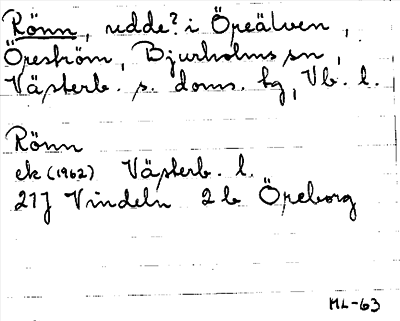 Rönn, udde? i Öreälven,
Öreström, Bjurholms sn,
Västerb. s. doms. hg, Vb. l.
Rönn
ek (1962) Västerb. l.
21J Vindeln 2b Öreborg
ML-63